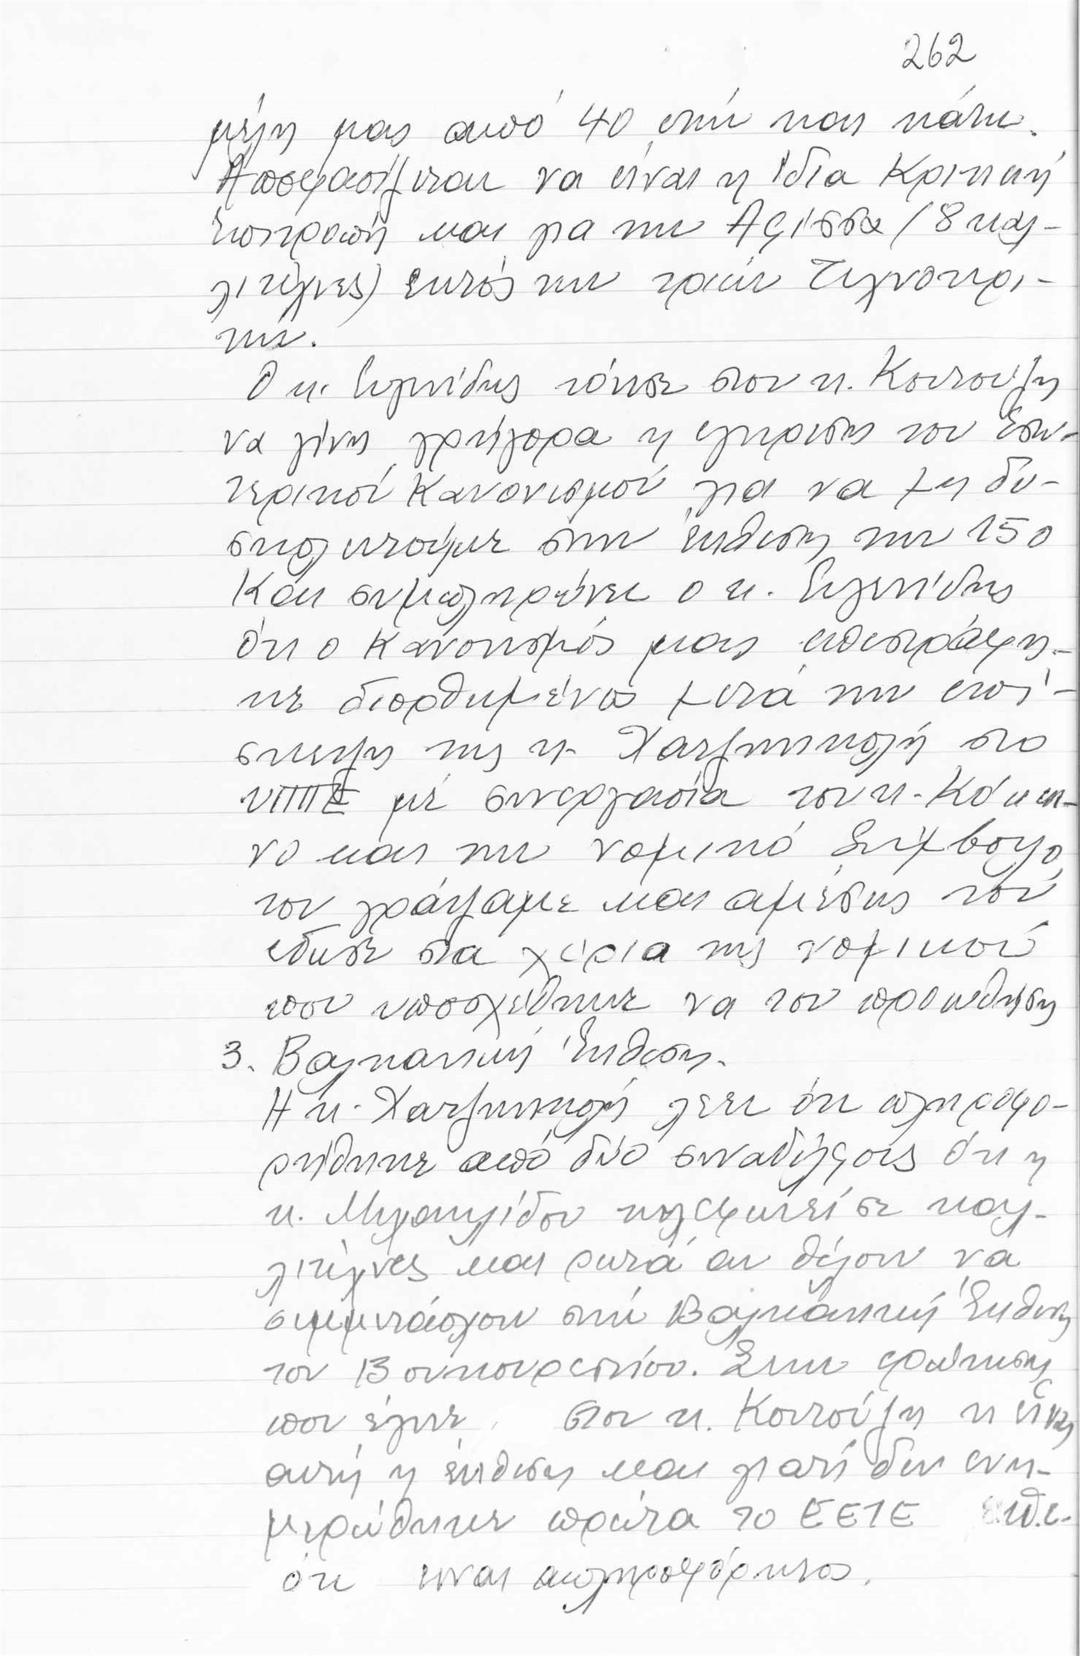 262
μέλη μας από 40 ετών και κάτω.
Αποφασίζεται να είναι η ίδια Κριτική
Επιτροπή και για την Αφίσσα (8 καλ-
λιτέχνες) εκτός των τριών Τεχνοκρι-
των.
Ο κ. τόνισε στον κ. Κουτούζη
να γίνη γρήγορα η έγκριση του Εσω-
τερικού Κανονισμού για να μη δυ-
σκολευτούμε στην έκθεση των 150
Και συμπληρώνει ο κ.
ότι ο Κανονισμός μας επεστράφη-
κε διορθωμένος μετά την επί-
σκεψη της κ. Χατζηνικολή στο
ΥΠΠΕ με συνεργασία του κ. Κόκκι-
νο και την νομικό Σύμβουλο
τον γράψαμε και αμέσως τον
έδωσε στα χέρια της νομικού
που υποσχέθηκε να τον προωθήση
3. Βαλκανική Έκθεση.
Η κ. Χατζηνικολή λέει ότι πληροφο-
ρήθηκε από δύο συναδέλφους ότι η
κ. Μιχαηλίδου τηλεφωνεί σε καλ-
λιτέχνες και ρωτά αν θέλουν να
συμμετάσχουν στην Βαλκανική Έκθεση
του Βουκουρεστίου. Στην ερώτηση
που έγινε στον κ. Κουτούζη τι είναι
αυτή η έκθεση και γιατί δεν ενη-
μερώθηκε πρώτα το ΕΕΤΕ
ότι είναι απληροφόρητος.